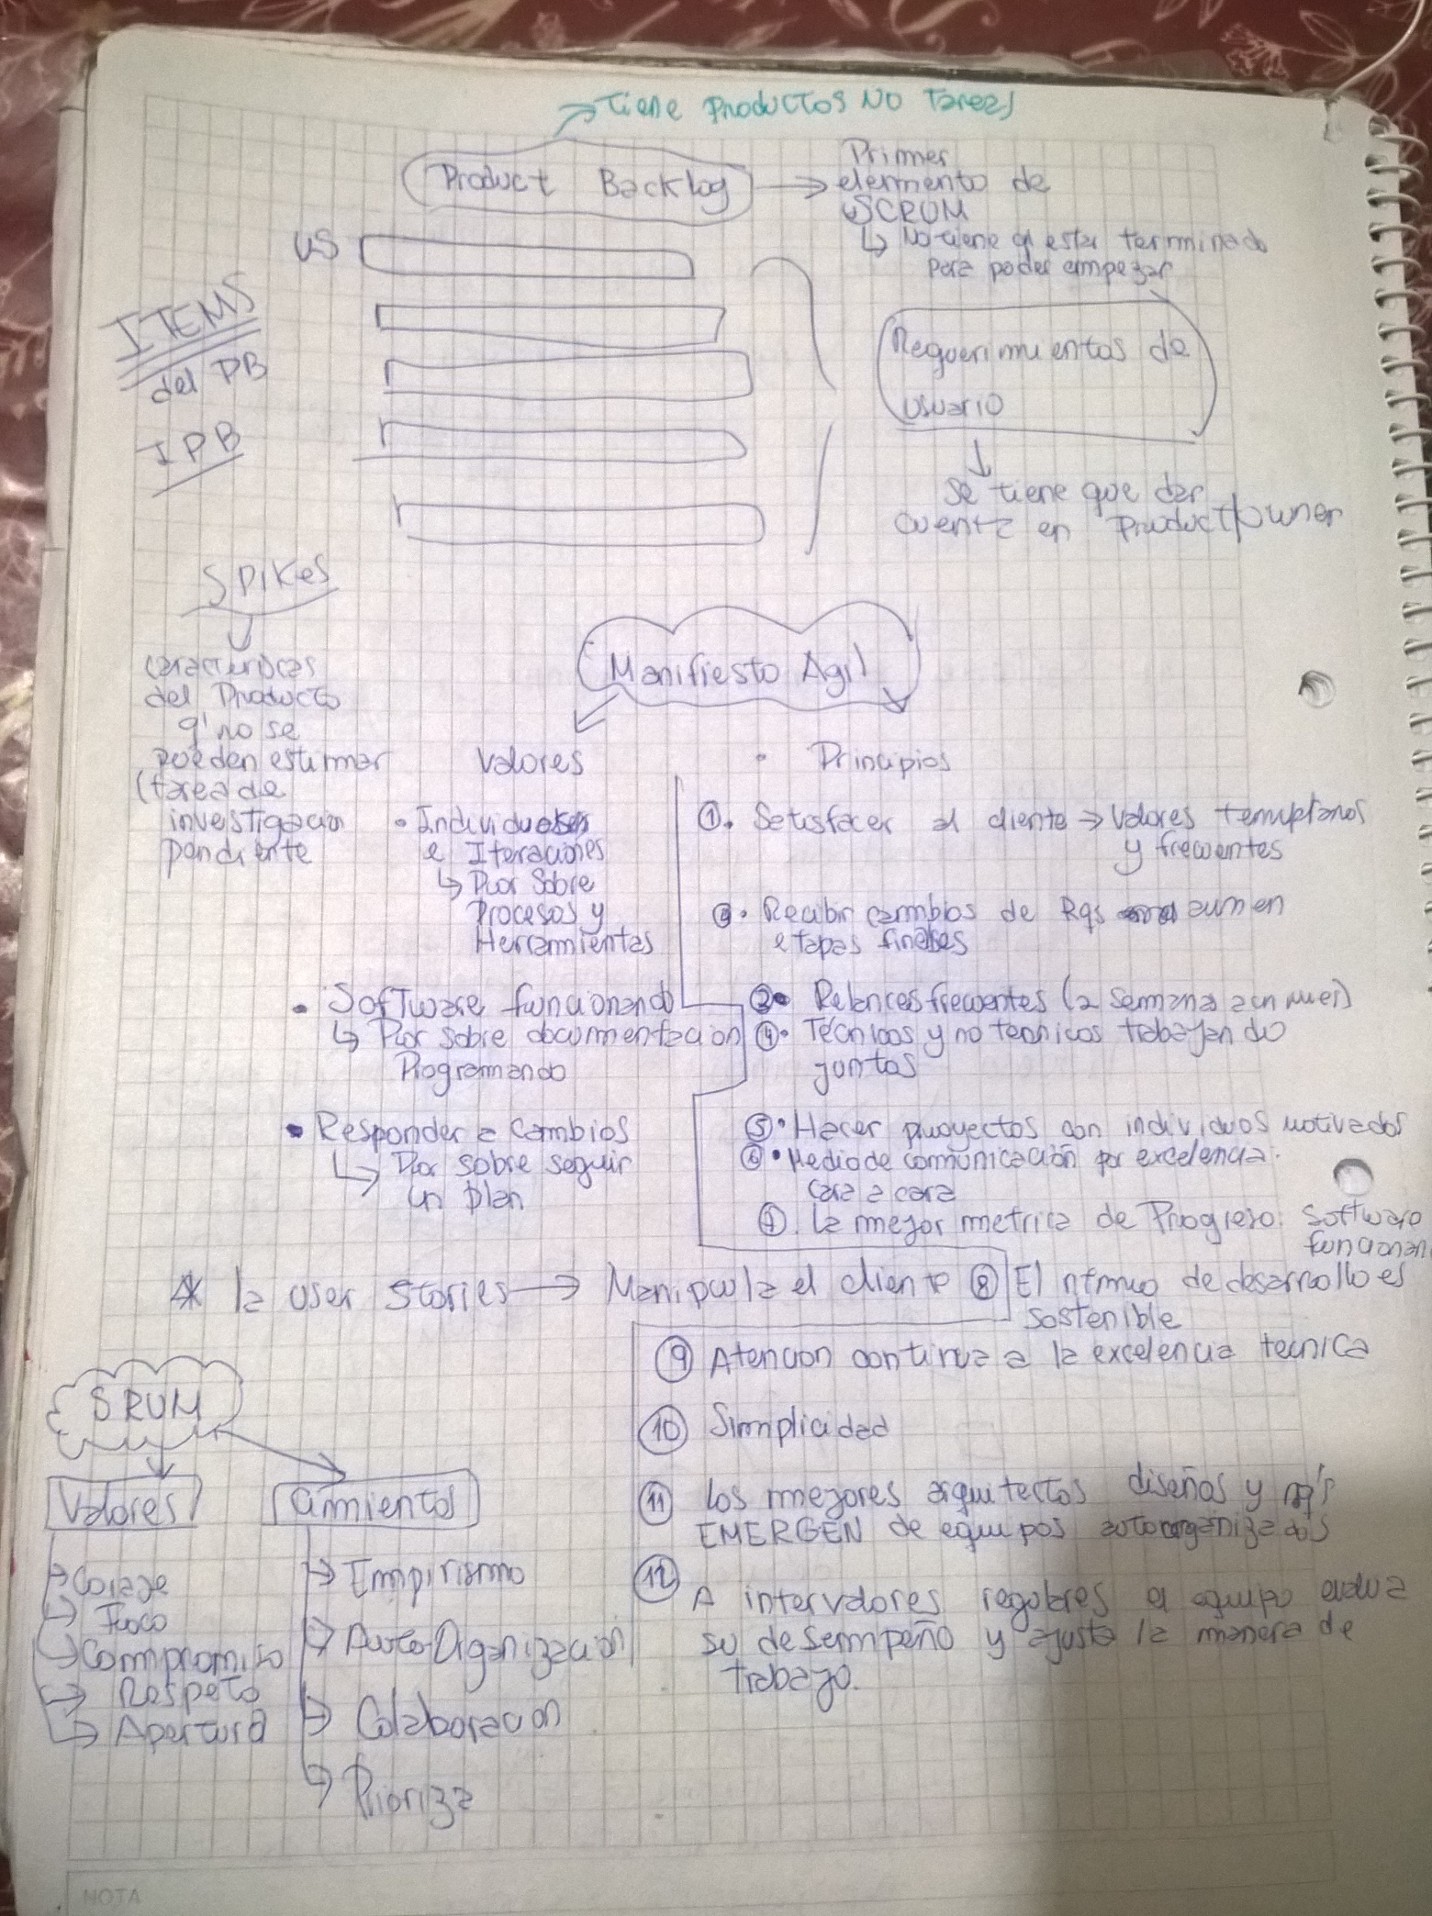 Tiene Productos NO Tareas
Product Backlog
Primer
elemento de
SCRUM
No tiene q' estar terminado
para poder empezar
US
ITEMS
del PB
IPB
Requerimientos de
usuario
Se tiene que dar
cuenta en Product Owner
SPIKES
caracteristicas
del Producto
q' no se
pueden estimar
(tarea de
investigacion
pendiente
Manifiesto Agil
Valores
• Individuos
e Iteraciones
Por Sobre
Procesos y
Herramientas
• Software funcionando
Por sobre documentacion
Programando
• Responder a cambios
Por sobre seguir
un plan
• Principios
①. Satisfacer al cliente → Valores tempranos
y frecuentes
②. Recibir cambios de Rqs aun en
etapas finales
③• frecuentes (2 semana a un mes)
④• Técnicos y no tecnicos trabajando
juntos
⑤• Hacer proyectos con individuos motivados
⑥• Medio de comunicación por excelencia:
cara a cara
⑦. La mejor metrica de Progreso: Software
funcionan
* la user stories → Manipula el cliente
⑧ El ritmo de desarrollo es
sostenible
⑨ Atencion continua a la excelencia tecnica
⑩ Simplicidad
⑪ Los mejores arquitectos diseños y
EMERGEN de equipos autoorganizados
⑫ A intervalores regulares el equipo evalua
su desempeño y ajusta la manera de
trabajo.
SRUM
Valores
Coraje
Foco
Compromiso
Respeto
Apertura
cimientos
Empirismo
Auto Organización
Colaboracion
Prioriza
NOTA